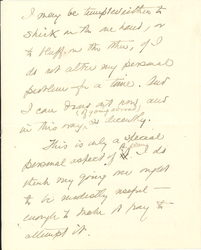 I may be tempted either to
shirk on the one hand, or
to bluff, on the other, if I
do not alter my personal
problem for a time. And
I can not now, and
in this way, decently.
This is only a special
personal aspect of I do
think my going we might
to be modestly useful —
enough to make it pay to
attempt it.